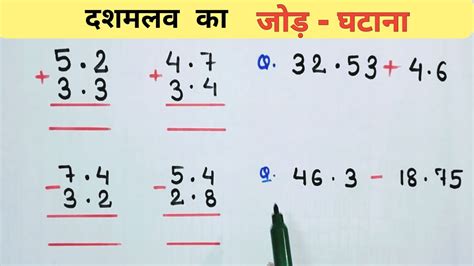 दशमलव का जोड़ - घटाना
+ 5.2
3.3
+ 4.7
3.4
Q. 32.53 + 4.6
- 7.4
3.2
- 5.4
2.8
Q. 46.3 - 18.75